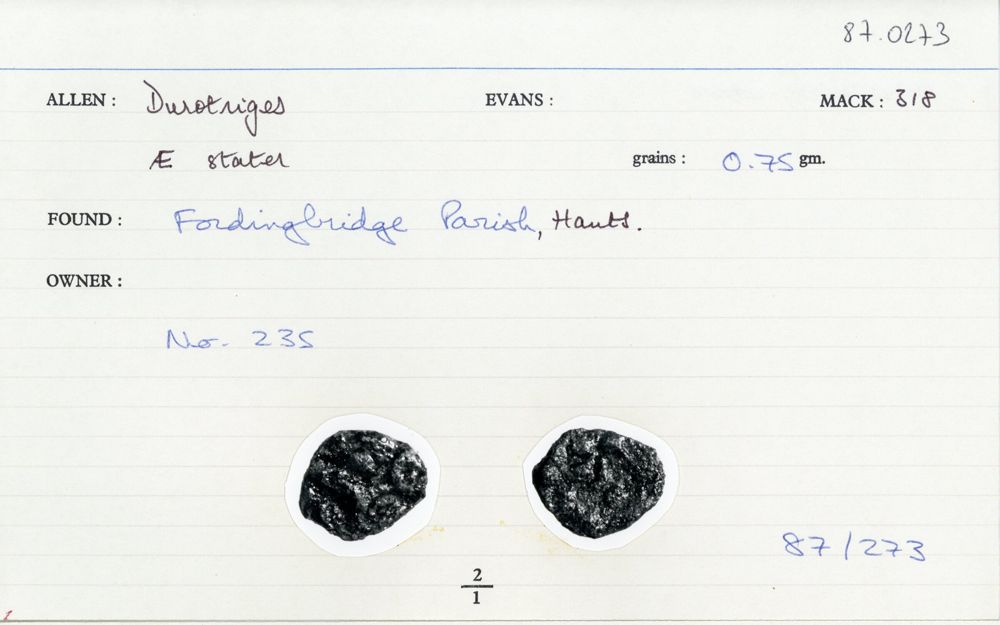 87.0273
ALLEN: Durotriges EVANS: MACK: 318
Æ stater grains: 0.75 gm.
FOUND: Fordingbridge Parish, Hants.
OWNER:
No. 235
87/273
2
1